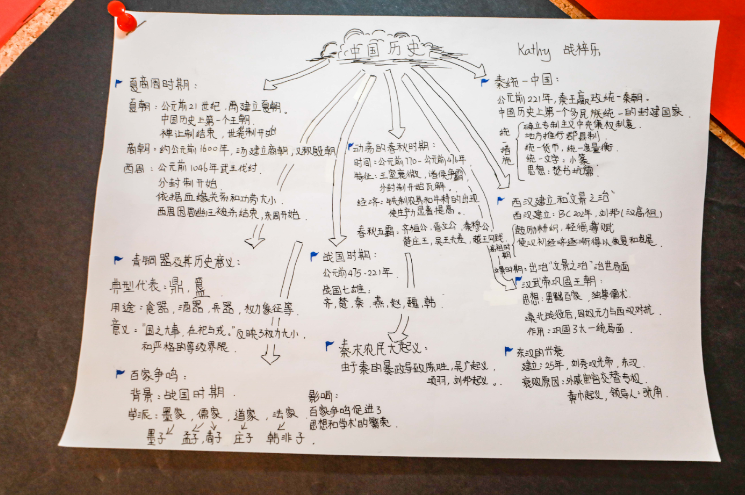 中国历史
Kathy 战梓乐
夏商周时期：
夏朝：公元前21世纪，禹建立夏朝。
中国历史上第一个王朝。
禅让制结束，世袭制开始
商朝：约公元前1600年，汤建立商朝，又称殷朝
西周：公元前1046年武王伐纣
分封制开始
依据血缘关系和功劳大小
西周因周幽王被杀结束，东周开始
青铜器及其历史意义：
典型代表：鼎，
用途：食器，酒器，兵器，权力象征等
意义："国之大事，在祀与戎。"反映了权力大小
和严格的等级界限
百家争鸣：
背景：战国时期
学派：墨家，儒家，道家，法家
墨子 孟子，荀子 庄子 韩非子
影响：
百家争鸣促进了
思想和学术的繁荣
动荡的春秋时期：
时间：公元前770-公元前476年
特征：王室衰微，诸侯争霸
分封制开始瓦解
经济：铁制农具和牛耕的出现
使生产力显著提高。
春秋五霸：齐桓公，晋文公，秦穆公
楚庄王，吴王夫差，越王勾践
战国时期：
公元前475-221年
战国七雄：
齐，楚，秦，燕，赵，魏，韩
秦末农民大起义：
由于秦的暴政导致陈胜，吴广起义
项羽，刘邦起义。
秦统一中国：
公元前221年，秦王嬴政统一秦朝。
中国历史上第一个多民族统一的封建国家
统一措施
确立专制主义中央集权制度
地方推行郡县制
统一货币，统一度量衡
统一文字：小篆
思想：焚书坑儒
西汉建立和"文景之治"
西汉建立：BC 202年，刘邦（汉高祖）
鼓励耕织，轻徭薄赋
使汉初经济逐渐得以恢复和发展
出现"文景之治"治世局面
汉武帝巩固王朝：
思想：罢黜百家，独尊儒术
漠北战役后，匈奴无力与西汉对抗
作用：巩固了大一统局面
东汉的兴衰
建立：25年，刘秀汉光帝，东汉
衰败原因：外戚宦官交替专权
黄巾起义，领导人：张角